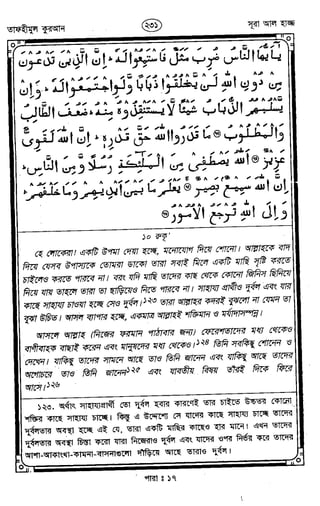 তাফহীমুল কুরআন
২৩১
সূরা আল হাজ্জ
يٰٓاَيُّهَا النَّاسُ ضُرِبَ مَثَلٌ فَاسْتَمِعُوْا لَهٗ ؕ اِنَّ الَّذِيْنَ تَدْعُوْنَ
مِنْ دُوْنِ اللّٰهِ لَنْ يَّخْلُقُوْا ذُبَابًا وَّلَوِ اجْتَمَعُوْا لَهٗ ؕ وَاِنْ
يَّسْلُبْهُمُ الذُّبَابُ شَيْئًا لَّا يَسْتَنْقِذُوْهُ مِنْهُ ؕ ضَعُفَ الطَّالِبُ
وَالْمَطْلُوْبُ ۞ مَا قَدَرُوا اللّٰهَ حَقَّ قَدْرِهٖ ؕ اِنَّ اللّٰهَ لَقَوِىٌّ
عَزِيْزٌ ۞ اَللّٰهُ يَصْطَفِىْ مِنَ الْمَلٰٓئِكَةِ رُسُلًا وَّمِنَ النَّاسِ ؕ
اِنَّ اللّٰهَ سَمِيْعٌۢ بَصِيْرٌ ۞ يَعْلَمُ مَا بَيْنَ اَيْدِيْهِمْ وَمَا خَلْفَهُمْ ؕ
وَاِلَى اللّٰهِ تُرْجَعُ الْاُمُوْرُ ۞
১০ রুকু'
হে লোকেরা! একটি উপমা দেয়া হচ্ছে, মনোযোগ দিয়ে শোনো। আল্লাহকে বাদ
দিয়ে যেসব উপাস্যকে তোমরা ডাকো তারা সবাই মিলে একটি মাছি সৃষ্টি করতে
চাইলেও করতে পারবে না। বরং যদি মাছি তাদের কাছ থেকে কোনো জিনিস ছিনিয়ে
নিয়ে যায় তাহলে তারা তা ছাড়িয়েও নিতে পারবে না। সাহায্য প্রার্থীও দুর্বল এবং যার
কাছে সাহায্য চাওয়া হচ্ছে সেও দুর্বল।১২৩ তারা আল্লাহর কদরই বুঝলো না যেমন তা
বুঝা উচিত। আসল ব্যাপার হচ্ছে, একমাত্র আল্লাহই শক্তিমান ও মর্যাদাসম্পন্ন।
আসলে আল্লাহ (নিজের ফরমান পাঠাবার জন্য) ফেরেশতাদের মধ্য থেকেও
বাণীবাহক বাছাই করেন এবং মানুষদের মধ্য থেকেও।১২৪ তিনি সবকিছু শোনেন ও
দেখেন। যাকিছু তাদের সামনে আছে তাও তিনি জানেন এবং যাকিছু আছে তাদের
অগোচরে তাও তিনি জানেন১২৫ এবং যাবতীয় বিষয় তাঁরই দিকে ফিরে
আসে।১২৬
১২৩. অর্থাৎ সাহায্যপ্রার্থী তো দুর্বল হবার কারণেই তার চাইতে উচ্চতর কোনো
শক্তির কাছে সাহায্য চাচ্ছে। কিন্তু এ উদ্দেশ্যে সে যাদের কাছে সাহায্য চাচ্ছে তাদের
দুর্বলতার অবস্থা হচ্ছে এই যে, তারা একটি মাছির কাছেও হার মানে। এখন তাদের
দুর্বলতার অবস্থা চিন্তা করো যারা নিজেরাও দুর্বল এবং যাদের ওপর নির্ভর করে তাদের
আশা-আকাংখা-কামনা-বাসনাগুলো দাঁড়িয়ে আছে তারাও দুর্বল।
পারা : ১৭